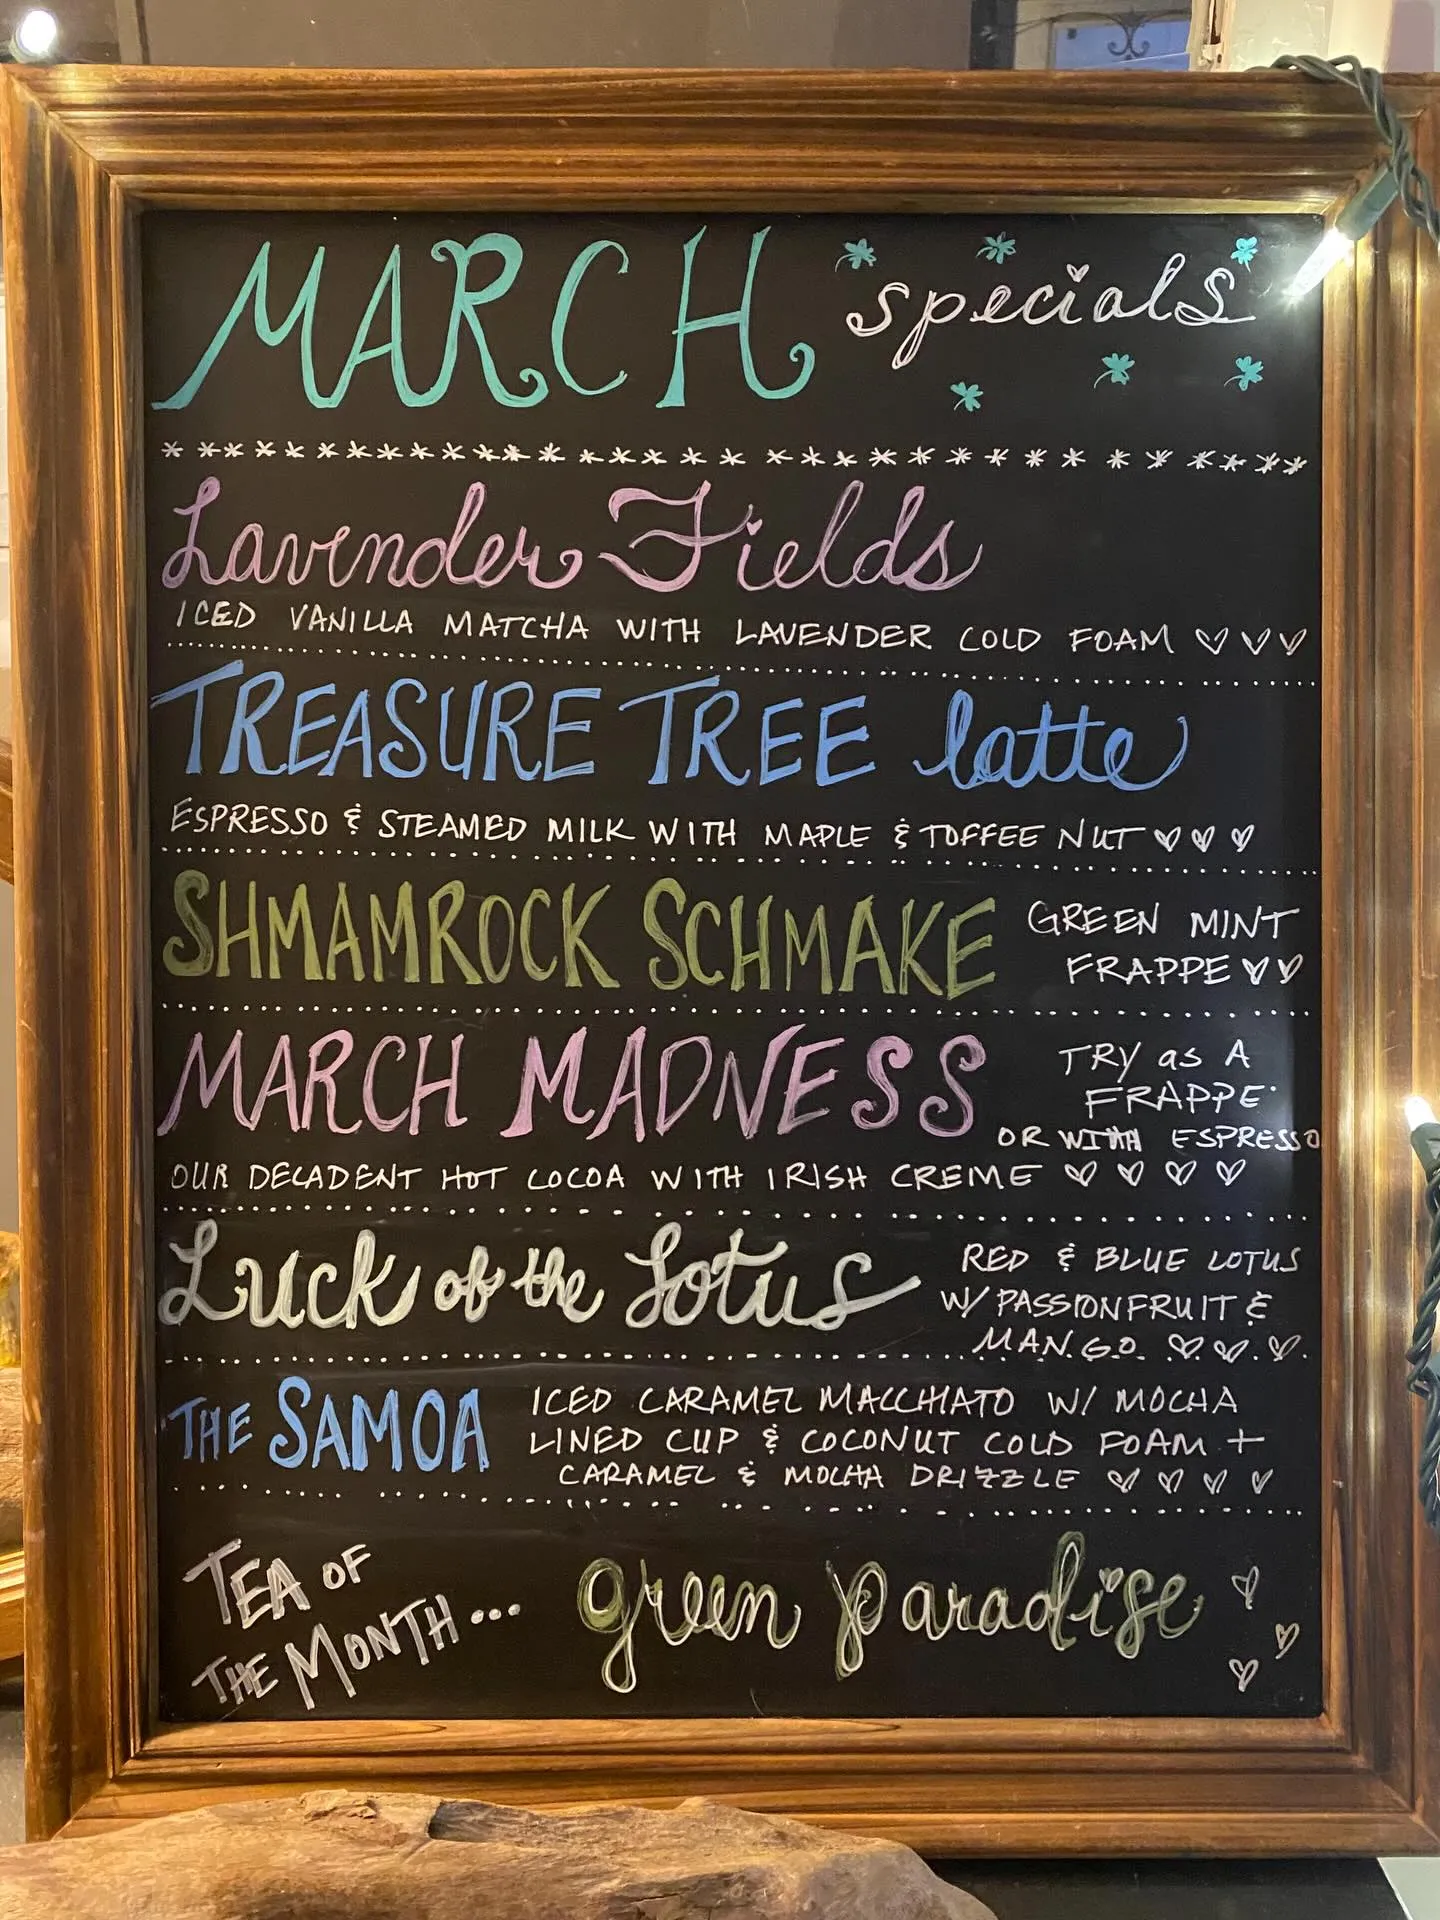 MARCH specials
Lavender Fields
ICED VANILLA MATCHA WITH LAVENDER COLD FOAM
TREASURE TREE latte
ESPRESSO & STEAMED MILK WITH MAPLE & TOFFEE NUT
SHMAMROCK SCHMAKE
GREEN MINT
FRAPPE
MARCH MADNESS
TRY as A
FRAPPE
OR WITH ESPRESSO
OUR DECADENT HOT COCOA WITH IRISH CREME
Luck of the Lotus
RED & BLUE LOTUS
W/ PASSIONFRUIT &
MANGO
THE SAMOA
ICED CARAMEL MACCHIATO W/ MOCHA
LINED CUP & COCONUT COLD FOAM +
CARAMEL & MOCHA DRIZZLE
TEA OF
THE MONTH...
green paradise